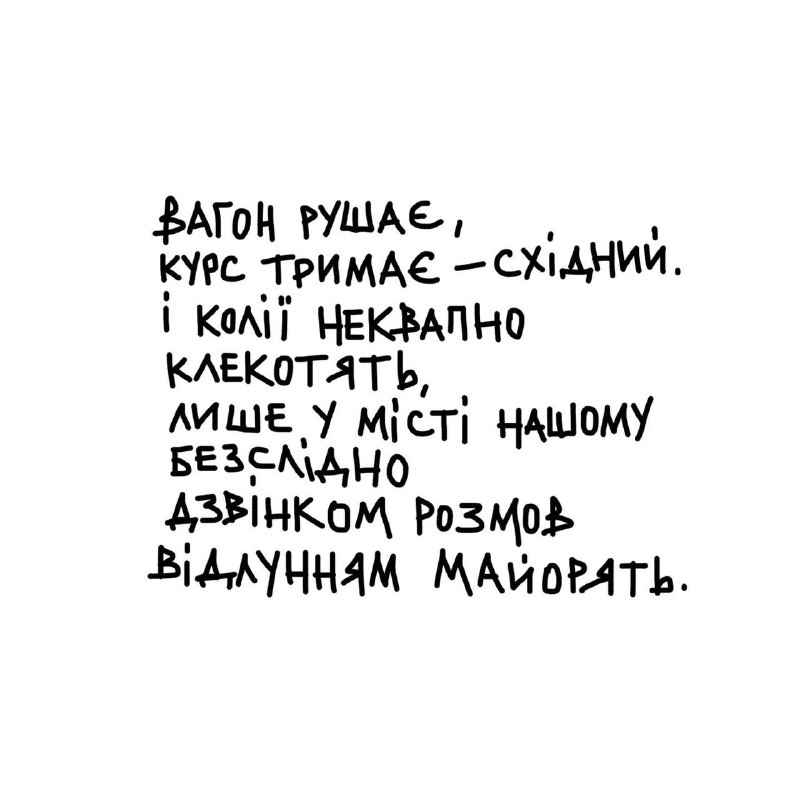 ВАГОН РУШАЄ,
КУРС ТРИМАЄ – СХІДНИЙ.
І КОЛІЇ НЕКВАПНО
КЛЕКОТЯТЬ,
ЛИШЕ У МІСТІ НАШОМУ
БЕЗСЛІДНО
ДЗВІНКОМ РОЗМОВ
ВІДЛУННЯМ МАЙОРЯТЬ.